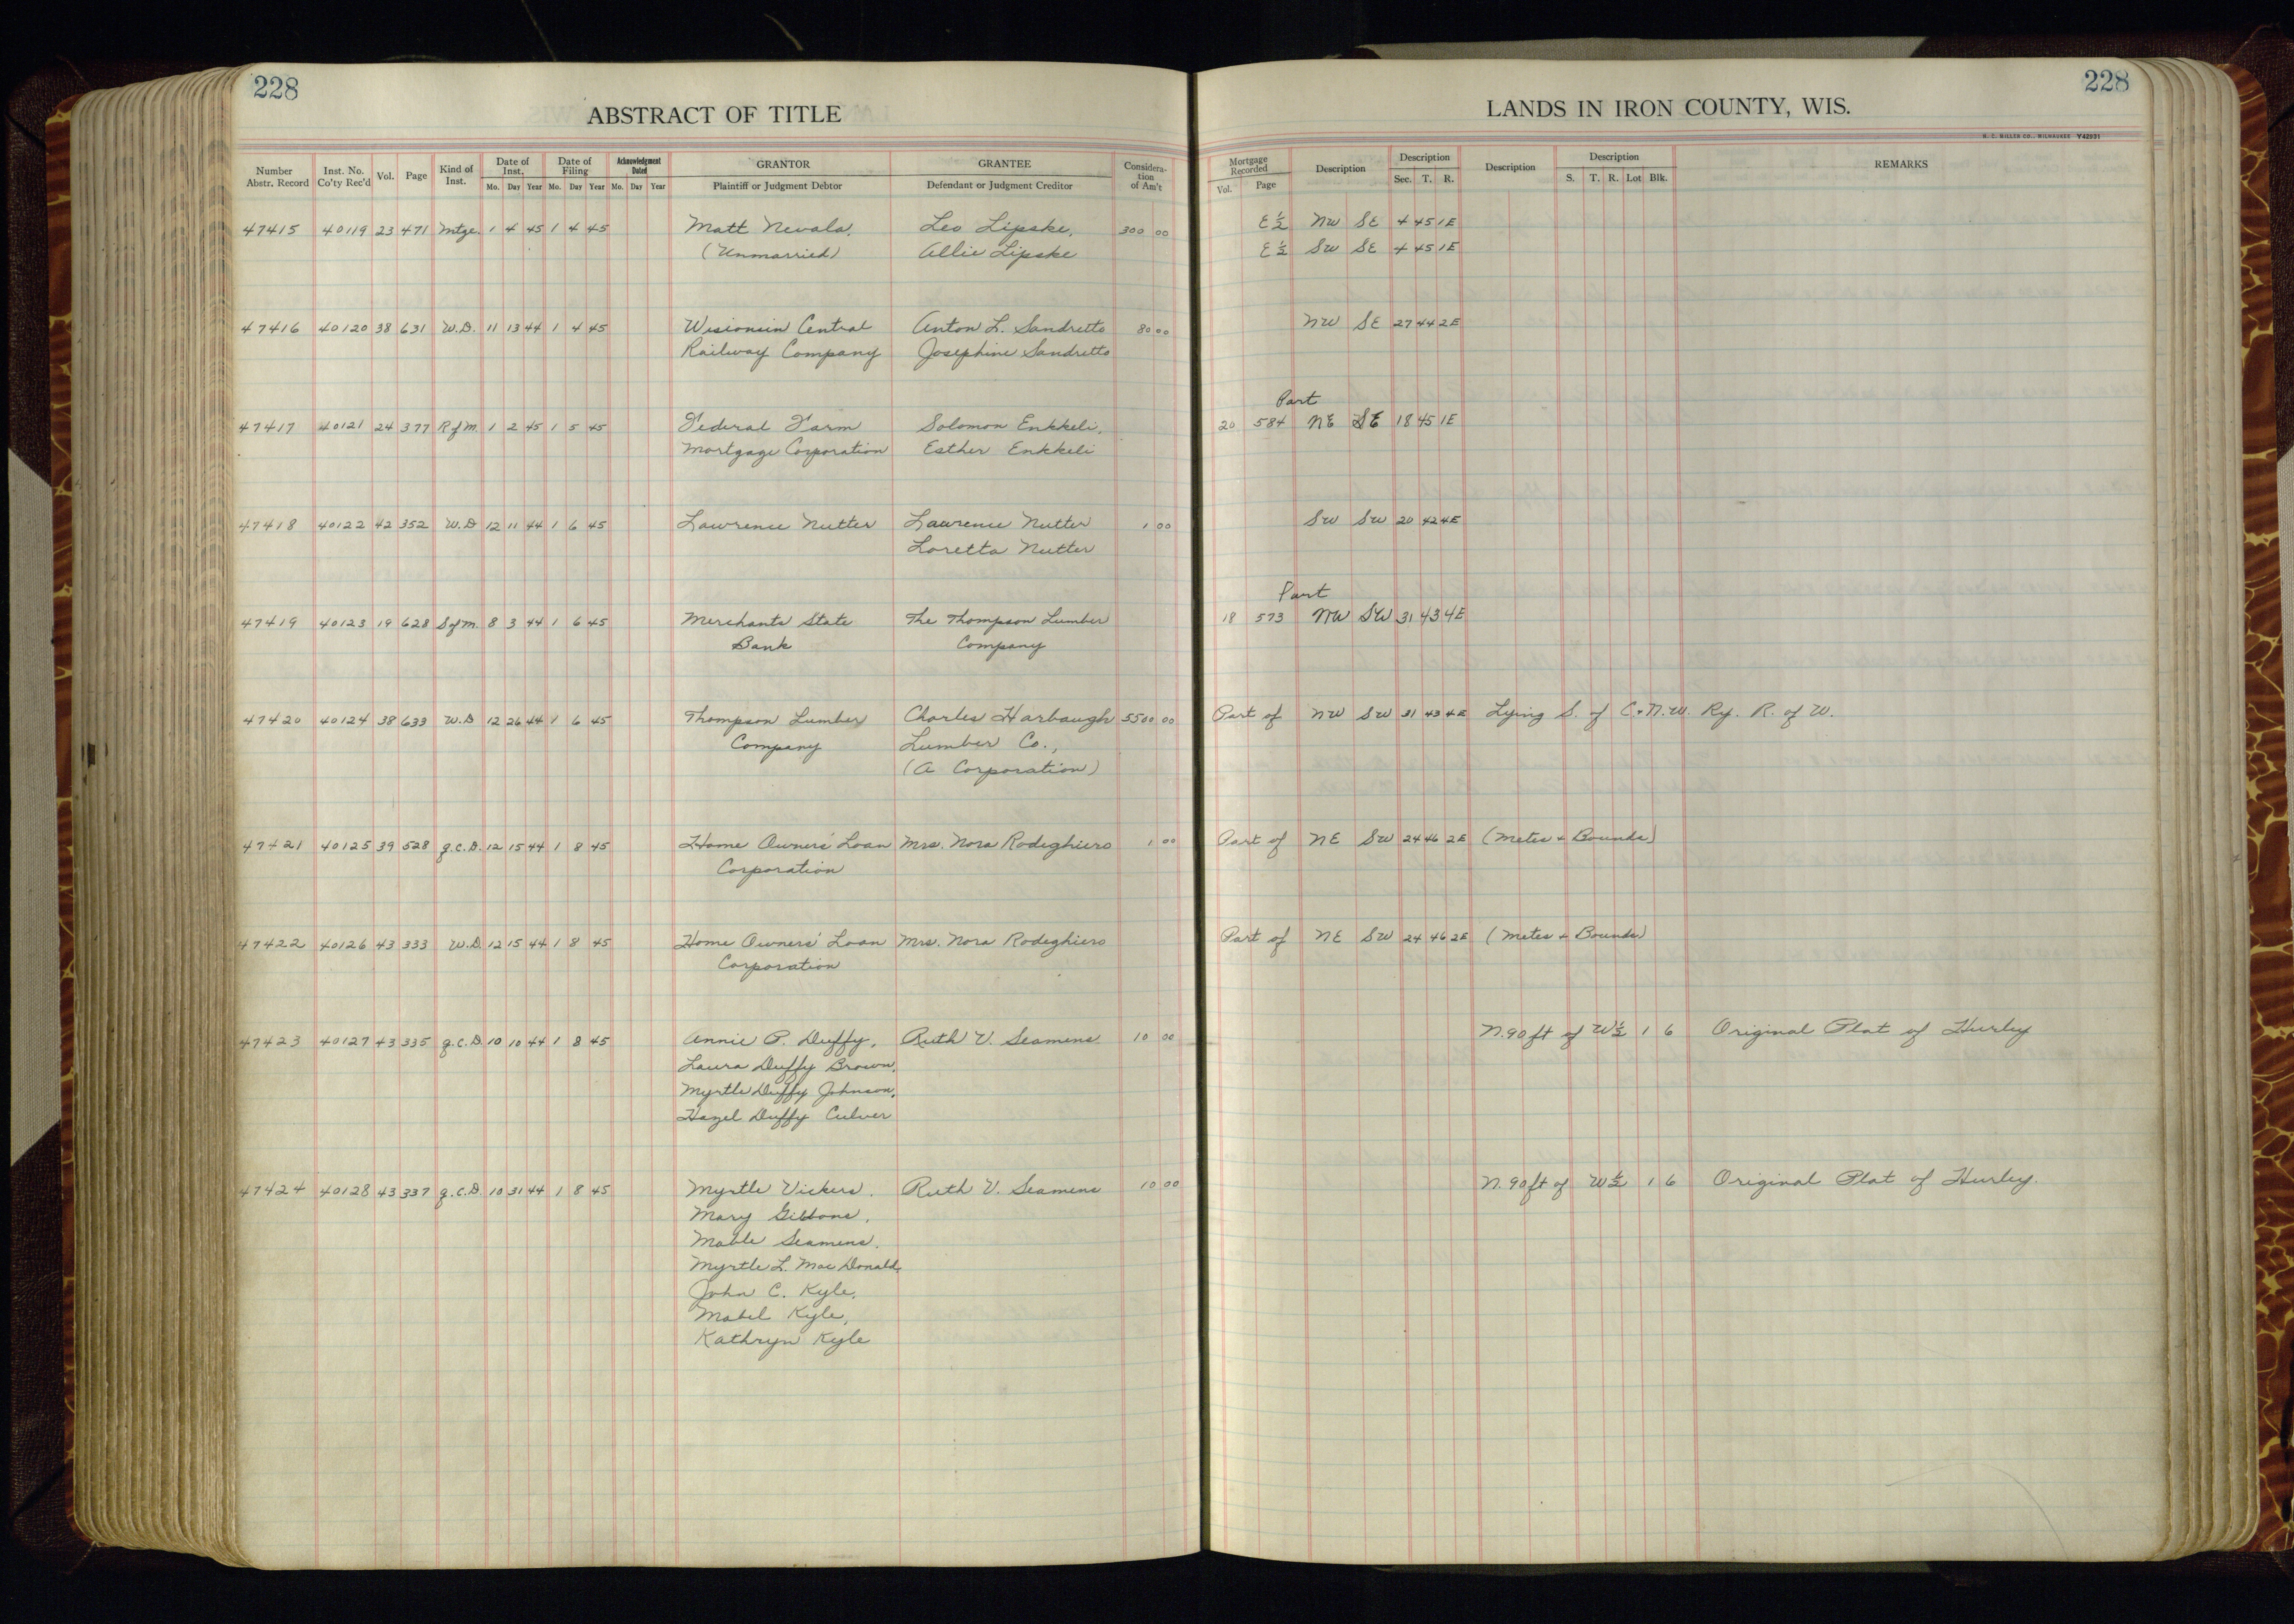 228
ABSTRACT OF TITLE
Number Abstr. Record | Inst. No. Co'ty Rec'd | Vol. | Page | Kind of Inst. | Date of Inst. Mo. Day Year | Date of Filing Mo. Day Year | Acknowledgment Dated Mo. Day Year | GRANTOR Plaintiff or Judgment Debtor | GRANTEE Defendant or Judgment Creditor | Consideration of Am't
47415 40119 23 471 Mtge. 1 4 45 1 4 45 Matt Nevala, Leo Lipske, 300 00
(Unmarried) Allie Lipske
47416 40120 38 631 W.D. 11 13 44 1 4 45 Wisconsin Central Anton L. Sandretto 80 00
Railway Company Josephine Sandretto
47417 40121 24 377 R of M. 1 2 45 1 5 45 Federal Farm Solomon Enkkeli,
Mortgage Corporation Esther Enkkeli
47418 40122 42 352 W.D 12 11 44 1 6 45 Lawrence Nutter Lawrence Nutter 1 00
Loretta Nutter
47419 40123 19 628 S of M. 8 3 44 1 6 45 Merchants State The Thompson Lumber
Bank Company
47420 40124 38 633 W.D 12 26 44 1 6 45 Thompson Lumber Charles Harbaugh 5500 00
Company Lumber Co.,
(A Corporation)
47421 40125 39 528 q.c.D. 12 15 44 1 8 45 Home Owners' Loan Mrs. Nora Rodeghiero 1 00
Corporation
47422 40126 43 333 W.D. 12 15 44 1 8 45 Home Owners' Loan Mrs. Nora Rodeghiero
Corporation
47423 40127 43 335 q.c.D. 10 10 44 1 8 45 Annie P. Duffy, Ruth V. Seamens 10 00
Laura Duffy Brown,
Myrtle Duffy Johnson,
Hazel Duffy Culver
47424 40128 43 337 q.c.D. 10 31 44 1 8 45 Myrtle Vickers, Ruth V. Seamens 10 00
Mary Gibbons,
Mable Seamens,
Myrtle L. Mac Donald,
John C. Kyle,
Mabel Kyle,
Kathryn Kyle
228
LANDS IN IRON COUNTY, WIS.
H. C. MILLER CO., MILWAUKEE Y42931
Mortgage Recorded Vol. Page | Description | Description Sec. T. R. | Description | Description S. T. R. Lot Blk. | REMARKS
E ½ NW SE 4 45 1E
E ½ SW SE 4 45 1E
NW SE 27 44 2E
Part
20 584 NE SE 18 45 1E
SW SW 20 42 4E
Part
18 573 NW SW 31 43 4E
Part of NW SW 31 43 4E Lying S. of C.+N.W. Ry. R. of W.
Part of NE SW 24 46 2E (Metes + Bounds)
Part of NE SW 24 46 2E (Metes + Bounds)
N.90 ft of W½ 1 6 Original Plat of Hurley
N.90 ft of W½ 1 6 Original Plat of Hurley.